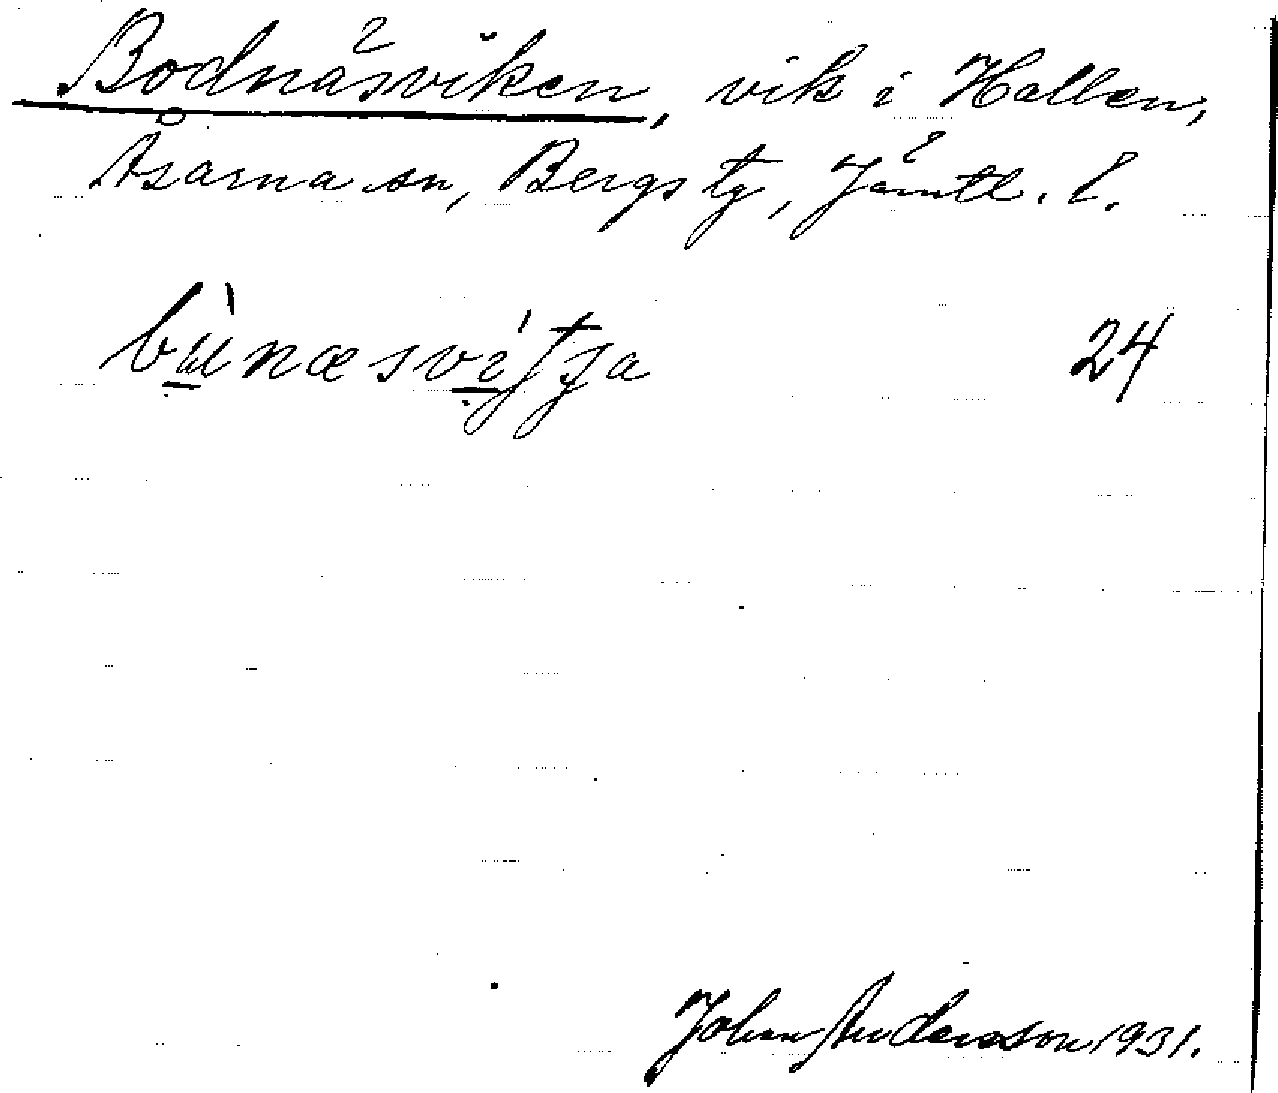 Bodnäsviken, vik i Hallen,
Åsarna sn, Bergs tg, Jämtl. l.
bùnæsvìtʃa 24
Johan Andersson 1931.